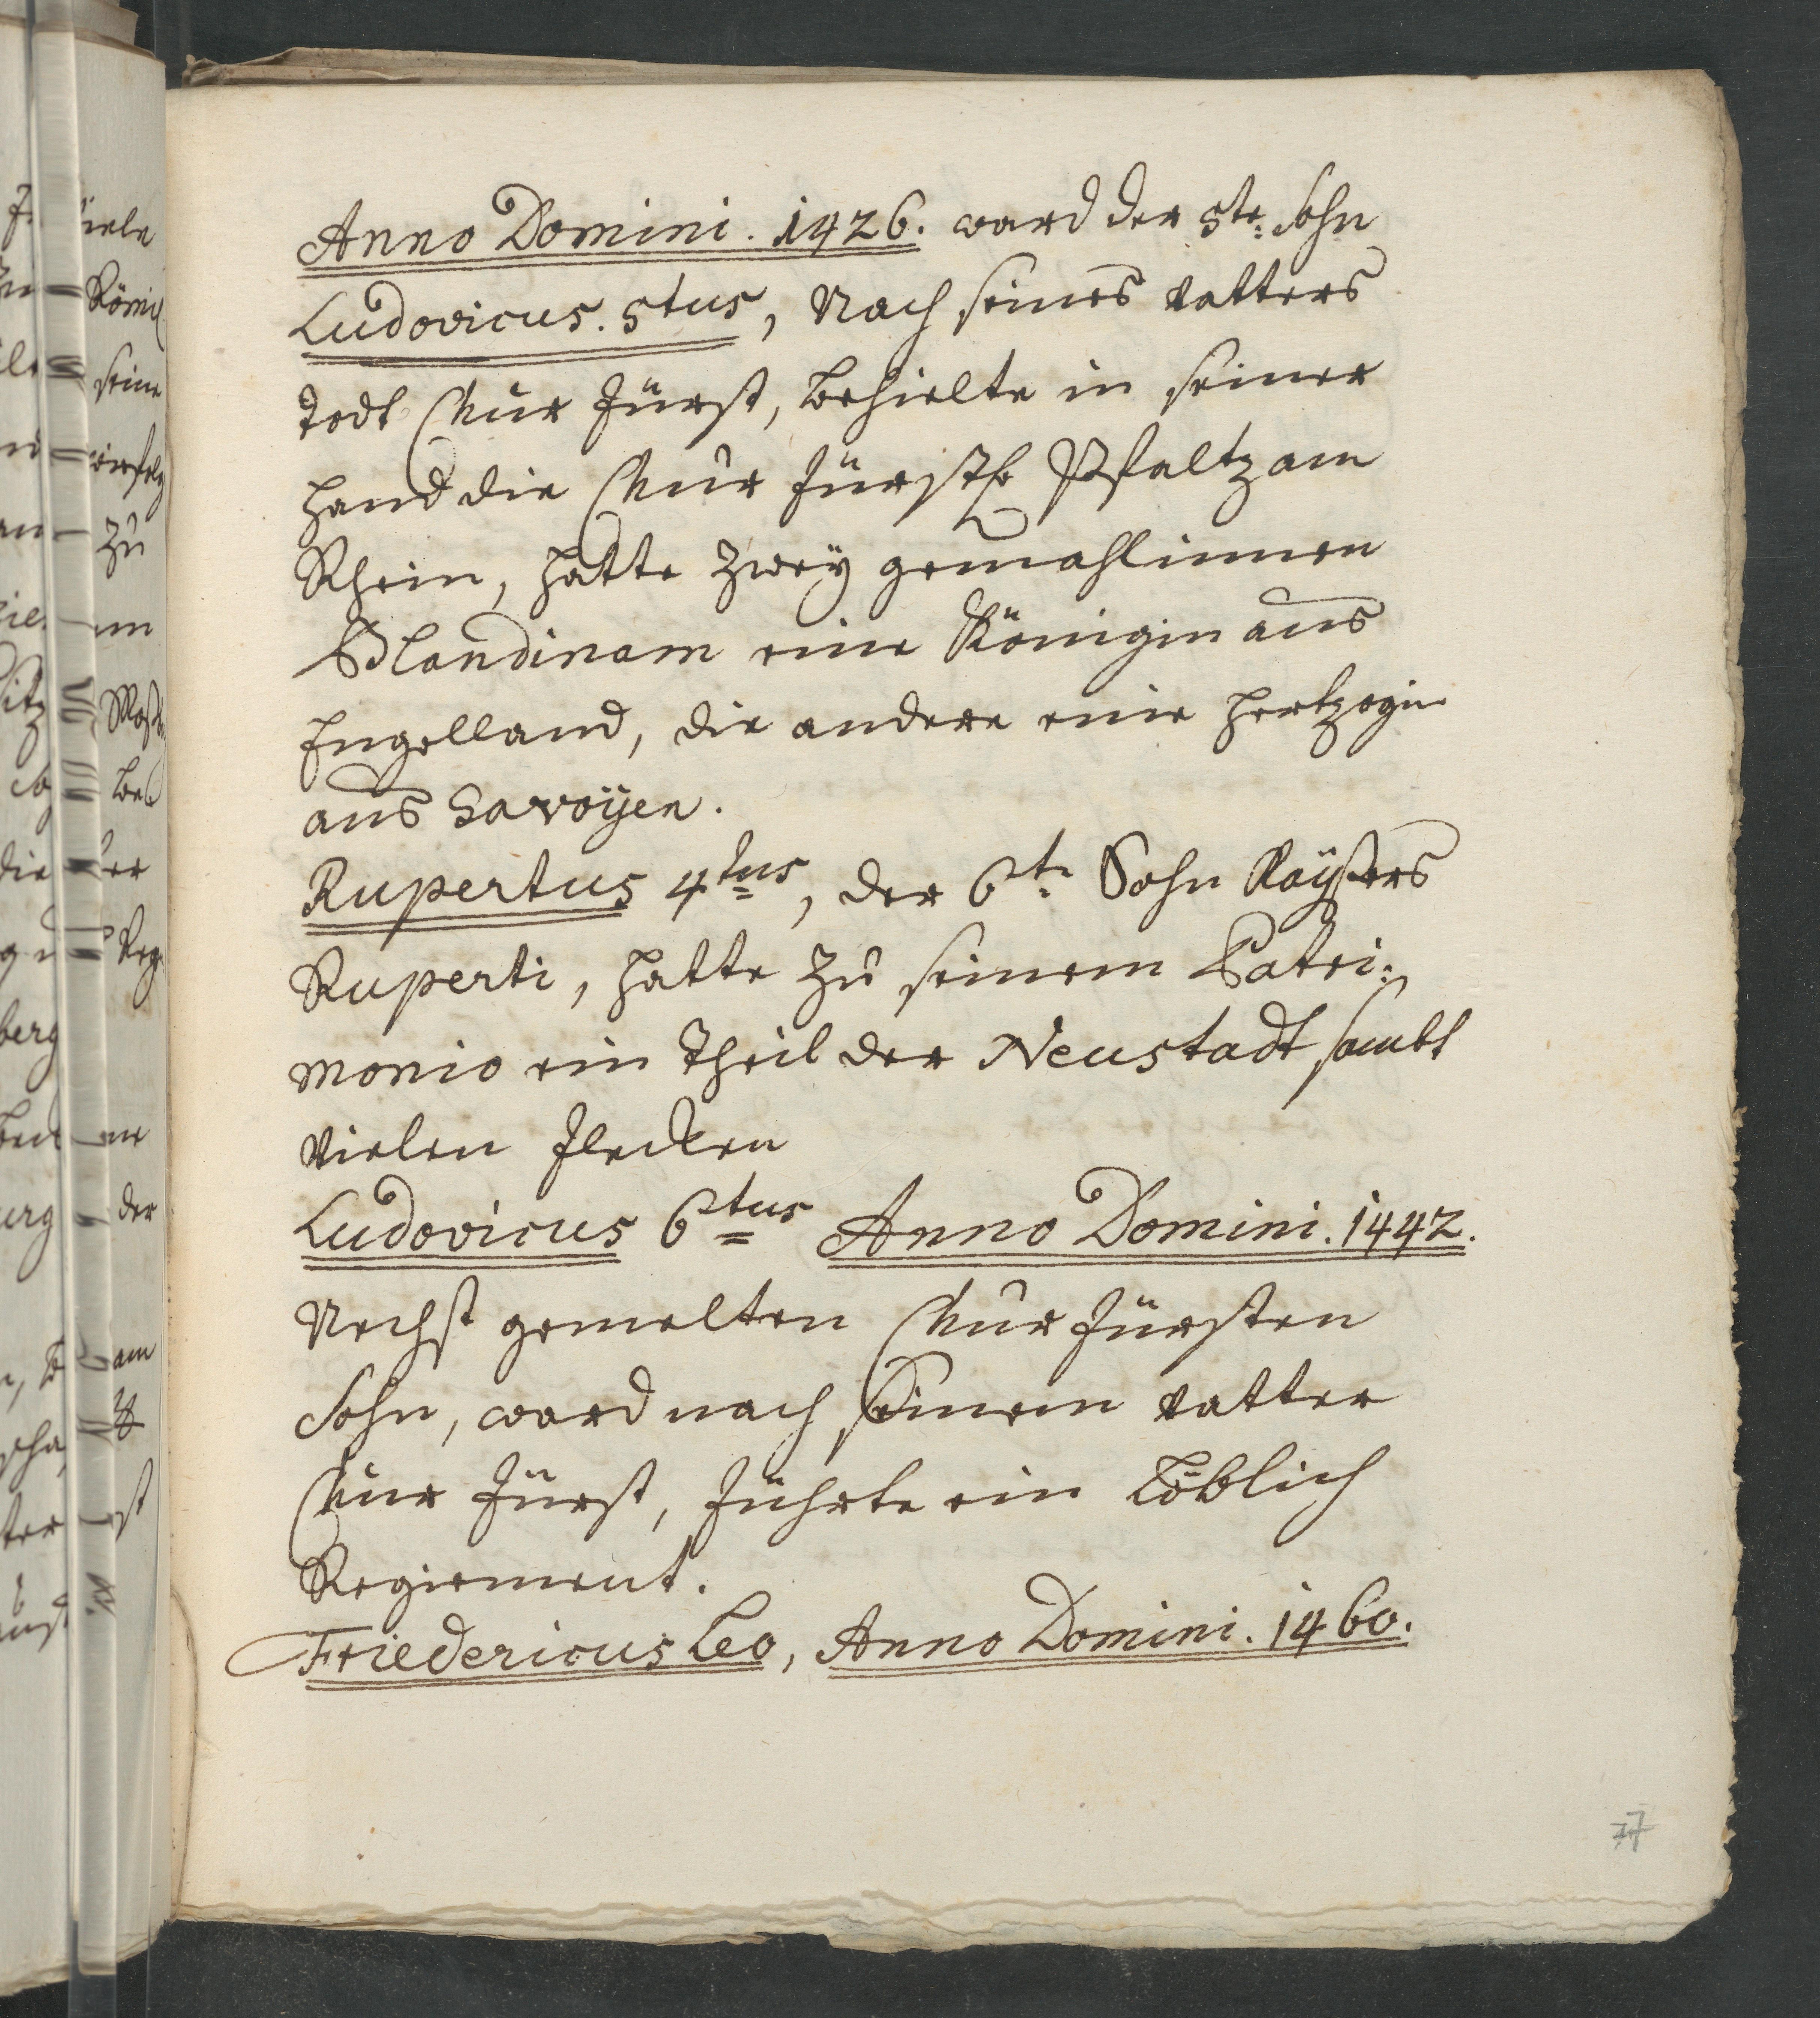 Anno Domini. 1426. ward der 5te: Sohn
Ludovicus. 5tus, Nach seines vatters
todt Chur Fürst, behielte in seiner
Hand die Chur Fürstl: Pfaltz am
Rhein, hatte zweÿ gemahlinnen
Blandinam eine Königin aus
Engelland, die andere eine Hertzogin
aus Savoÿen.
Rupertus 4tus, der 6te Sohn Kaÿsers
Ruperti, hatte zu seinem Patri:
monio ein Theil der Neustadt sambt
vielen Flecken
Ludovicus 6tus Anno Domini. 1442.
Nechst gemelten Chur Fürsten
Sohn, ward nach seinem vatter
Chur Fürst, führte ein Löblich
Regiement.
Friedericus Leo, Anno Domini. 1460.
27